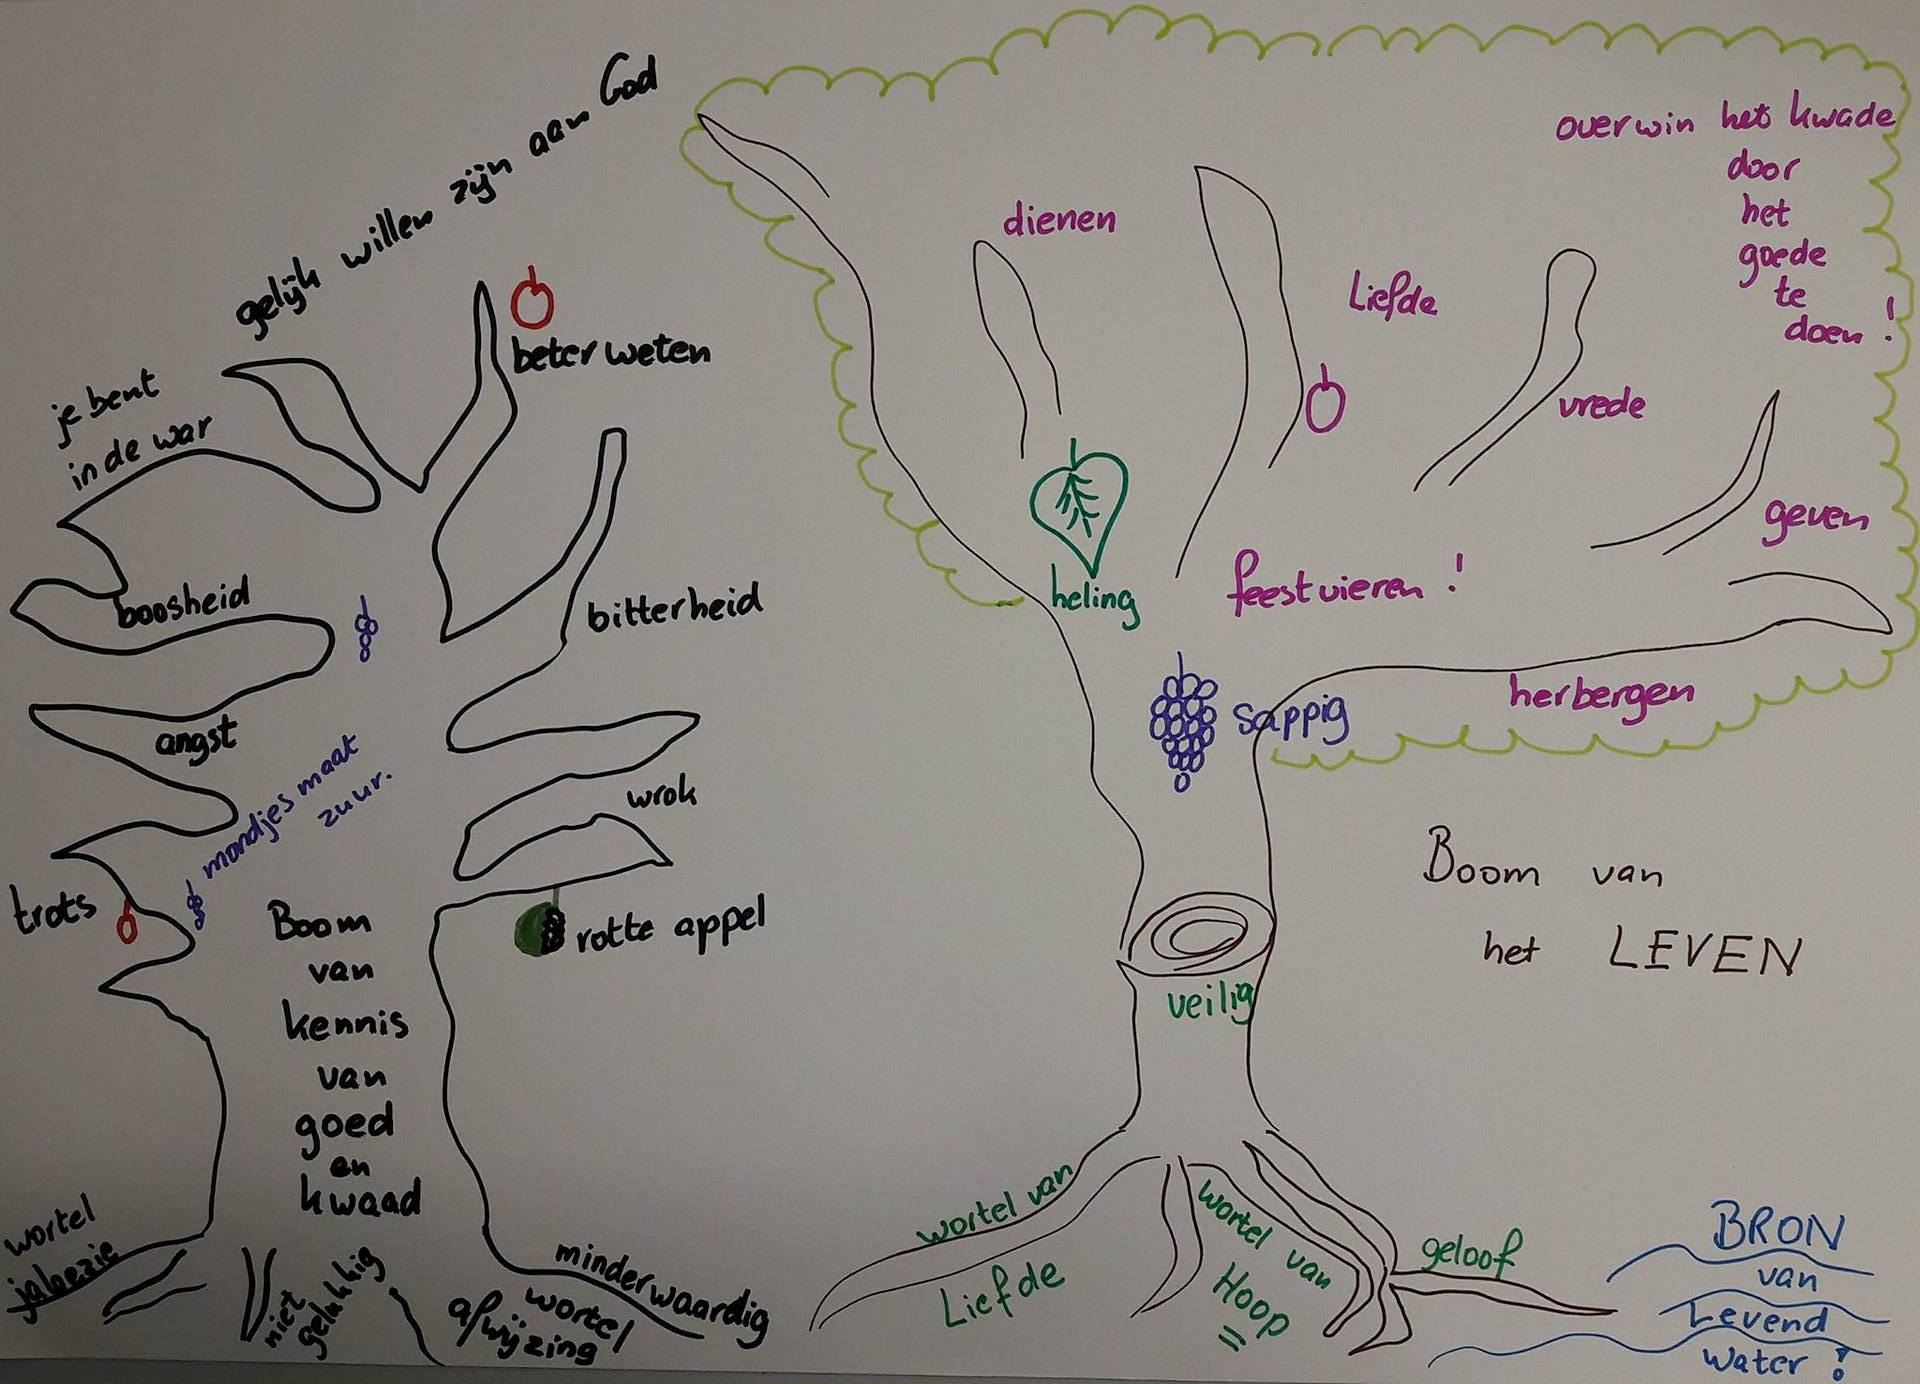 gelijk willen zijn aan God
beter weten
je bent
in de war
boosheid
bitterheid
angst
mondjes maat
zuur.
wrok
trots
rotte appel
Boom
van
kennis
van
goed
en
kwaad
wortel
jaloezie
niet
gelukkig
minderwaardig
wortel
afwijzing
overwin het kwade
door
het
goede
te
doen !
dienen
Liefde
vrede
geven
heling
feestvieren !
herbergen
sappig
Boom van
het LEVEN
veilig
wortel van
Liefde
wortel van
Hoop
geloof
BRON
van
Levend
water !